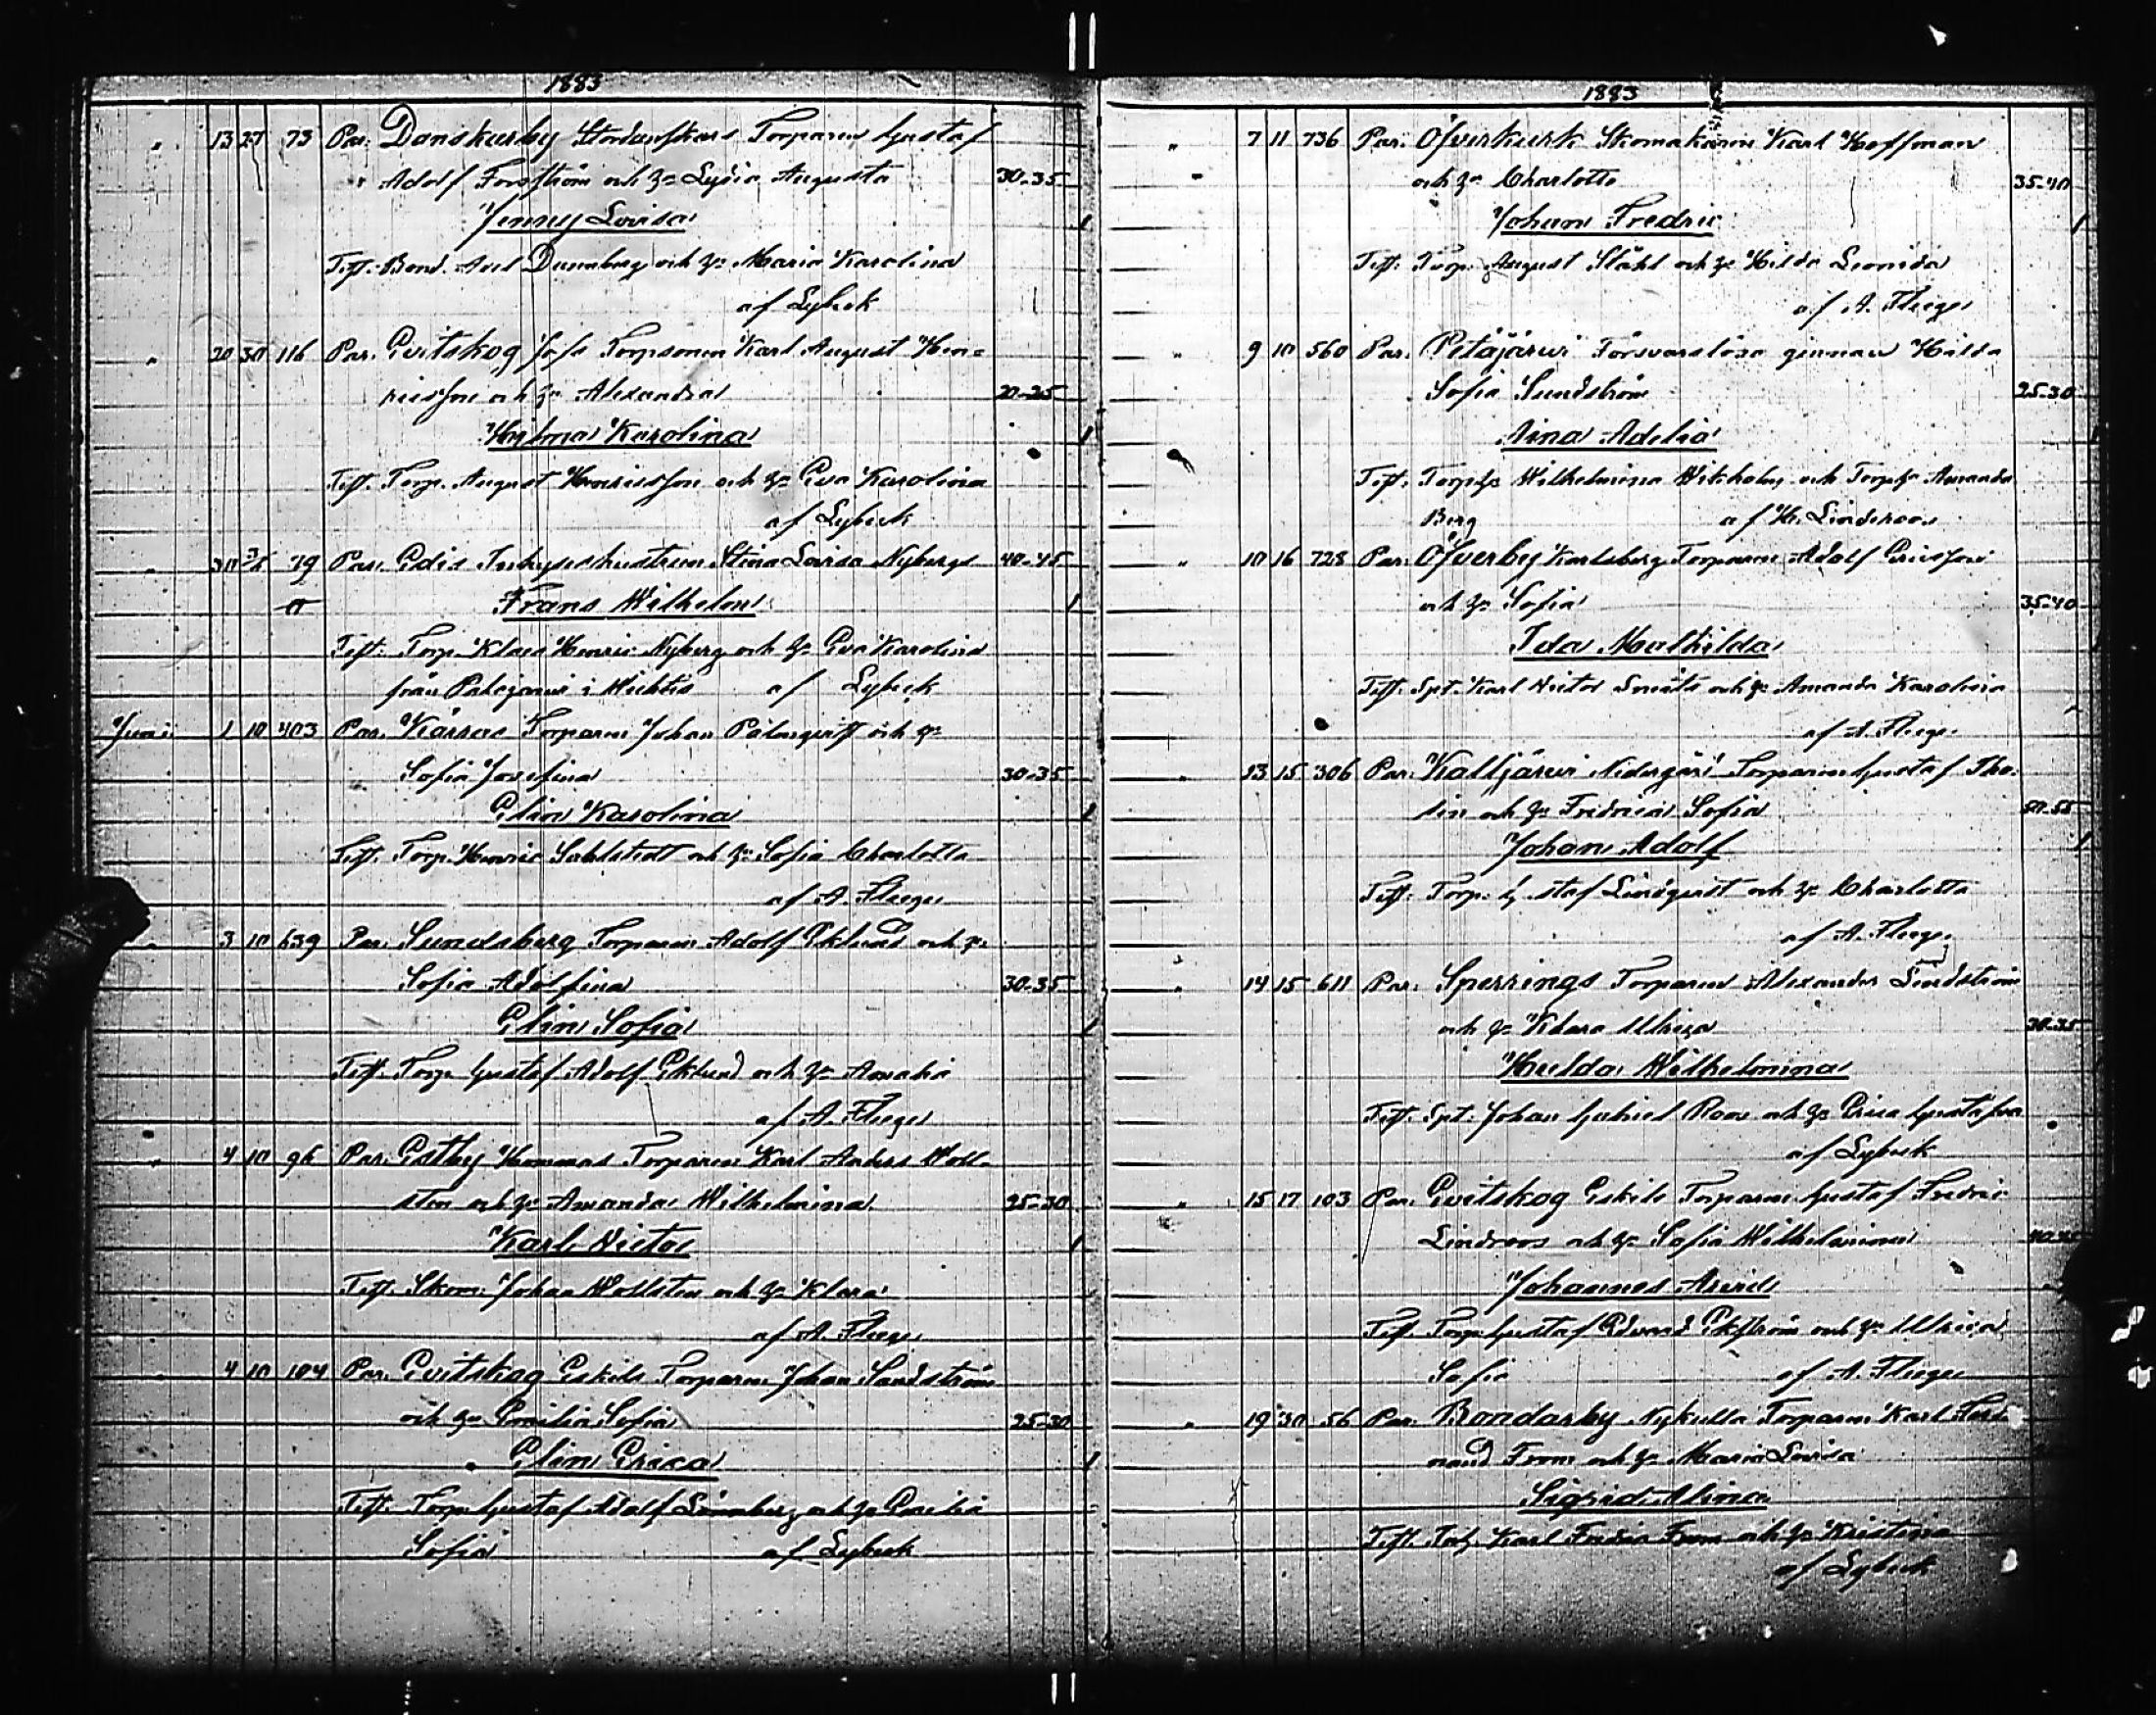 1883
" 13 27 73 Par. Danskarby Stordanskars Torparen Gustaf
Adolf Forsström och h:u Lydia Augusta 30-35
Jenny Lovisa 1
Test: Bond. Axel Dannberg och h:u Maria Karolina
af Lybeck
" 20 30 116 Par. Evitskog Torpsonen Karl August Hen=
ricsson och h:u Alexandra 20-25
Hylma Karolina 1
Test. Torp. August Henricsson och h:u Eva Karolina
af Lybeck
" 30 79 Par. Edis Inhyseshustrun Stina Lovisa Nyberg 40-45
Frans Wilhelm 1
Test: Torp. Klaes Henric Nyberg och h:u Eva Karolina
från Palojärvi i Wichtis af Lybeck
Juni 1 10 403 Par. Kärras Torparen Johan Palmqvist och h:u
Sofia Josefina 30-35
Elin Karolina 1
Test. Torp. Henric Sahlstedt och h:u Sofia Charlotta
af A. Fleege
" 3 10 639 Par. Sundsberg Torparen Adolf Eklund och h:u
Sofia Adolfina 30-35
Elin Sofia 1
Test. Torp. Gustaf Adolf Eklund och h:u Amalia
af A. Fleege
" 4 10 96 Par. Estby Hommas Torparen Karl Anders Woll-
sten och h:u Amanda Wilhelmina 25-30
Karl Victor 1
Test. Skom. Johan Wollsten och h:u Klara
af A. Fleege
" 4 10 104 Par. Evitskog Eskils Torparen Johan Sandström
och h:u Emilia Sofia 25-30
Elin Erica 1
Test. Torp. Gustaf Adolf Lönnberg och h:u Emilia
Sofia af Lybeck
1883
" 7 11 736 Par. Öfverkurk Skomakaren Karl Hoffman
och h:u Charlotta 35-40
Johan Fredric 1
Test: Torp. August Ståhl och h:u Hilda Leonida
af A. Fleege
" 9 10 560 Par. Petäjärvi Försvarslösa qvinnan Hilda
Sofia Sundström 25-30
Aina Adelia 1
Test. Torp.h. Wilhelmina Wikholm och Torp.h:u Amanda
Berg af H. Linderoos
" 10 16 728 Par. Öfverby Karlsberg Torparen Adolf Ericsson
och h:u Sofia 35-40
Ida Mathilda 1
Test. Spt. Karl Victor och h:u Amanda Karolina
af A. Fleege
" 13 15 306 Par. Kaltjärvi Nidergård Torparen Gustaf Tho-
lin och h:u Fredrica Sofia 50-55
Johan Adolf 1
Test: Torp. Gustaf Lindqvist och h:u Charlotta
af A. Fleege
" 14 15 611 Par. Sperrings Torparen Alexander Lindström
och h:u Klara Ulrica 30-35
Hulda Wilhelmina
Test. Spt. Johan Gabriel Roos och h:u Erica Gustafva
af Lybeck
" 15 17 103 Par. Evitskog Eskils Torparen Gustaf Fredric
Lindroos och h:u Sofia Wilhelmina 40-45
Johannes Arvid
Test. Torp. Gustaf Edvard Ekström och h:u Ulrica
Sofia af A. Fleege
" 19 30 56 Par. Bondarby Nykulla Torparen Karl Ferdi
nand From och h:u Maria Lovisa
Sigrid Alina
Test. Torp. Karl Fredric From och h:u Kristina
af Lybeck